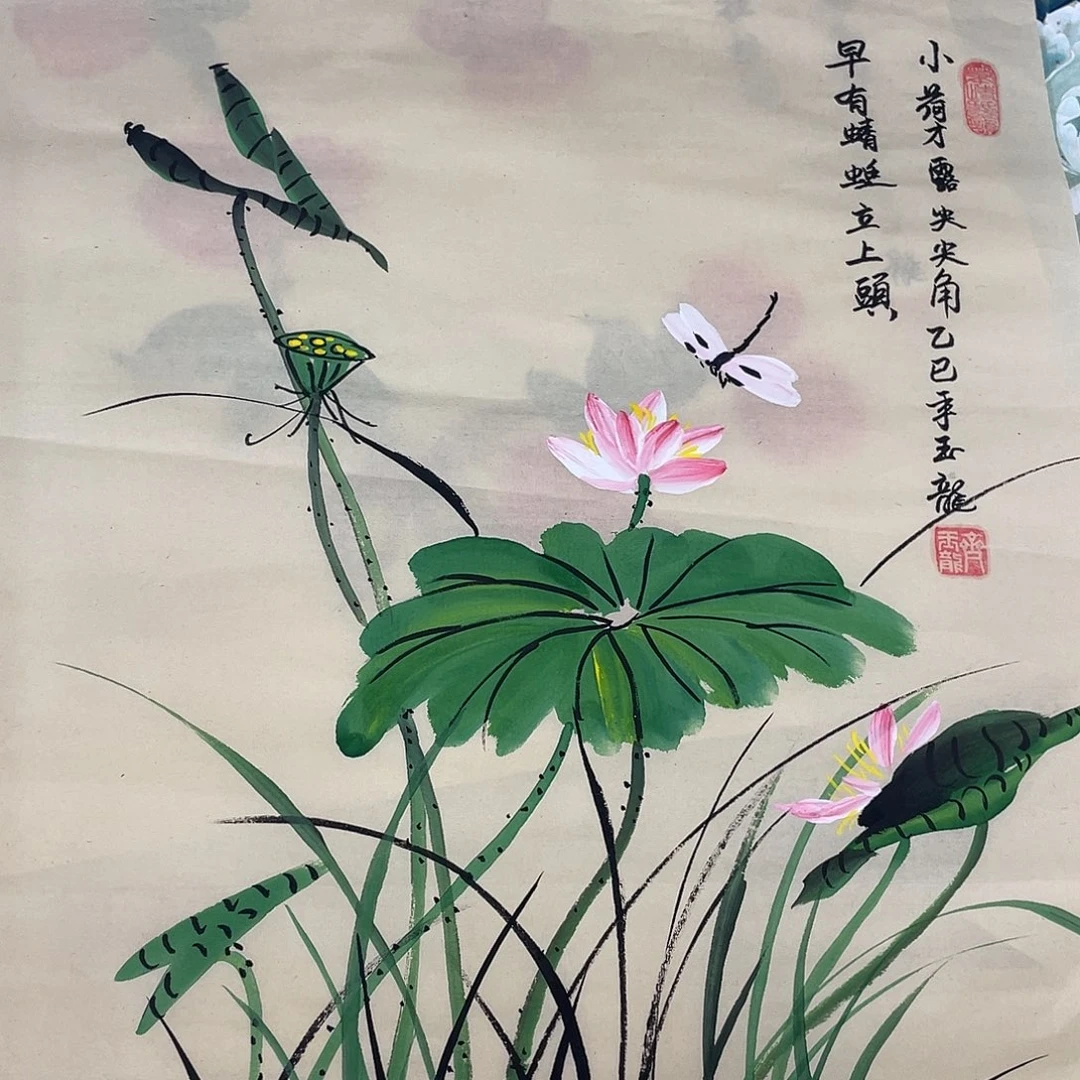 小荷才露尖尖角乙巳年玉龍
早有蜻蜓立上頭
齐玉龍